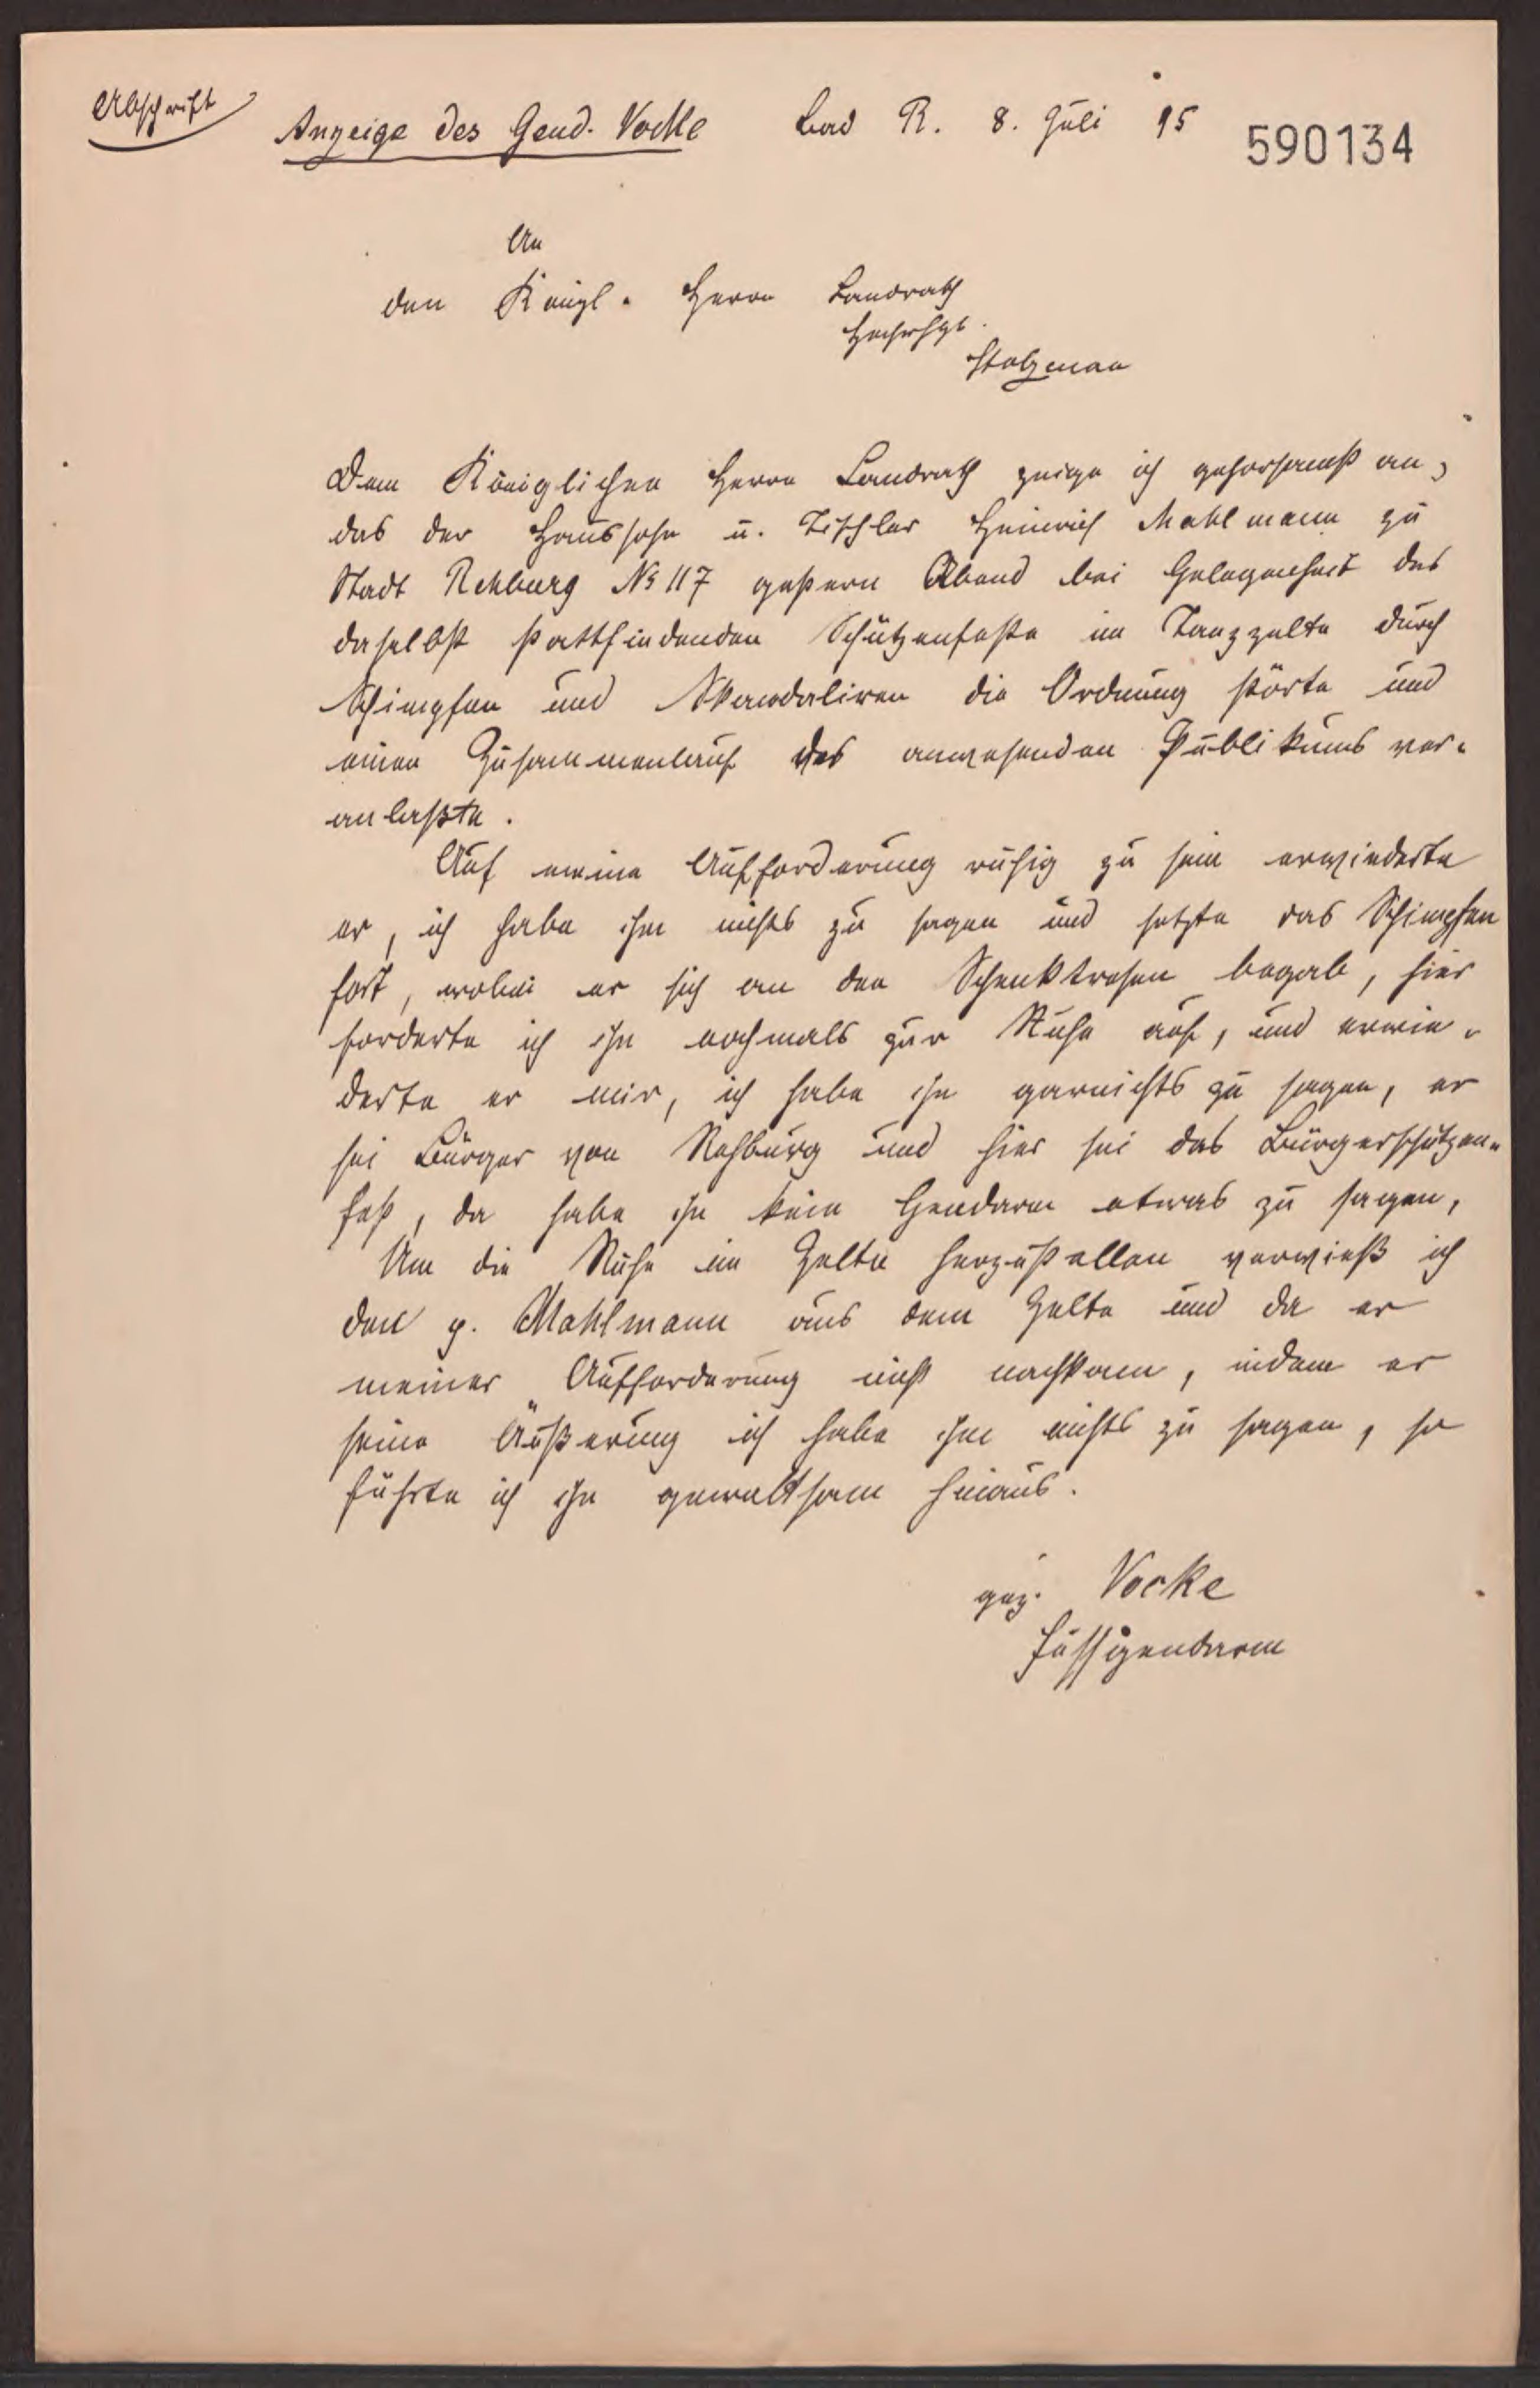 Abschrift
Anzeige des Gend. Vocke Bad R. 8. Juli 95
590134
An
den Königl. Herrn Landrath
Hochwhgb.
Stolzenau
Dem Königlichen Herrn Landrath zeige ich gehorsamst an,
das der Haussohn u. Tischler Heinrich Mahlmann zu
Stadt Rehburg No 117 gestern Abend bei Gelegenheit des
daselbst stattfindenden Schützenfeste im Tanzzelte durch
Schimpfen und Skandaliren die Ordnung störte und
einen Zusammenlauf des anwesenden Publikums ver-
anlaßte.
Auf meine Aufforderung ruhig zu sein erwiederte
er, ich habe ihm nichts zu sagen und setzte das Schimpfen
fort, wobei er sich an den Schenktresen begab, hier
forderte ich ihn nochmals zur Ruhe auf, und erwie-
derte er mir, ich habe ihn garnichts zu sagen, er
sei Bürger von Rehburg und hier sei das Bürgerschützen-
fest, da habe ihn kein Gendarm etwas zu sagen,
Um die Ruhe im Zelte herzustellen verwieß ich
den p. Mahlmann aus dem Zelte und da er
meiner Aufforderung nicht nachkam, indem er
seine Äußerung ich habe ihm nichts zu sagen, so
führte ich ihn gewaltsam hinaus.
gez. Vocke
Fußgendarm